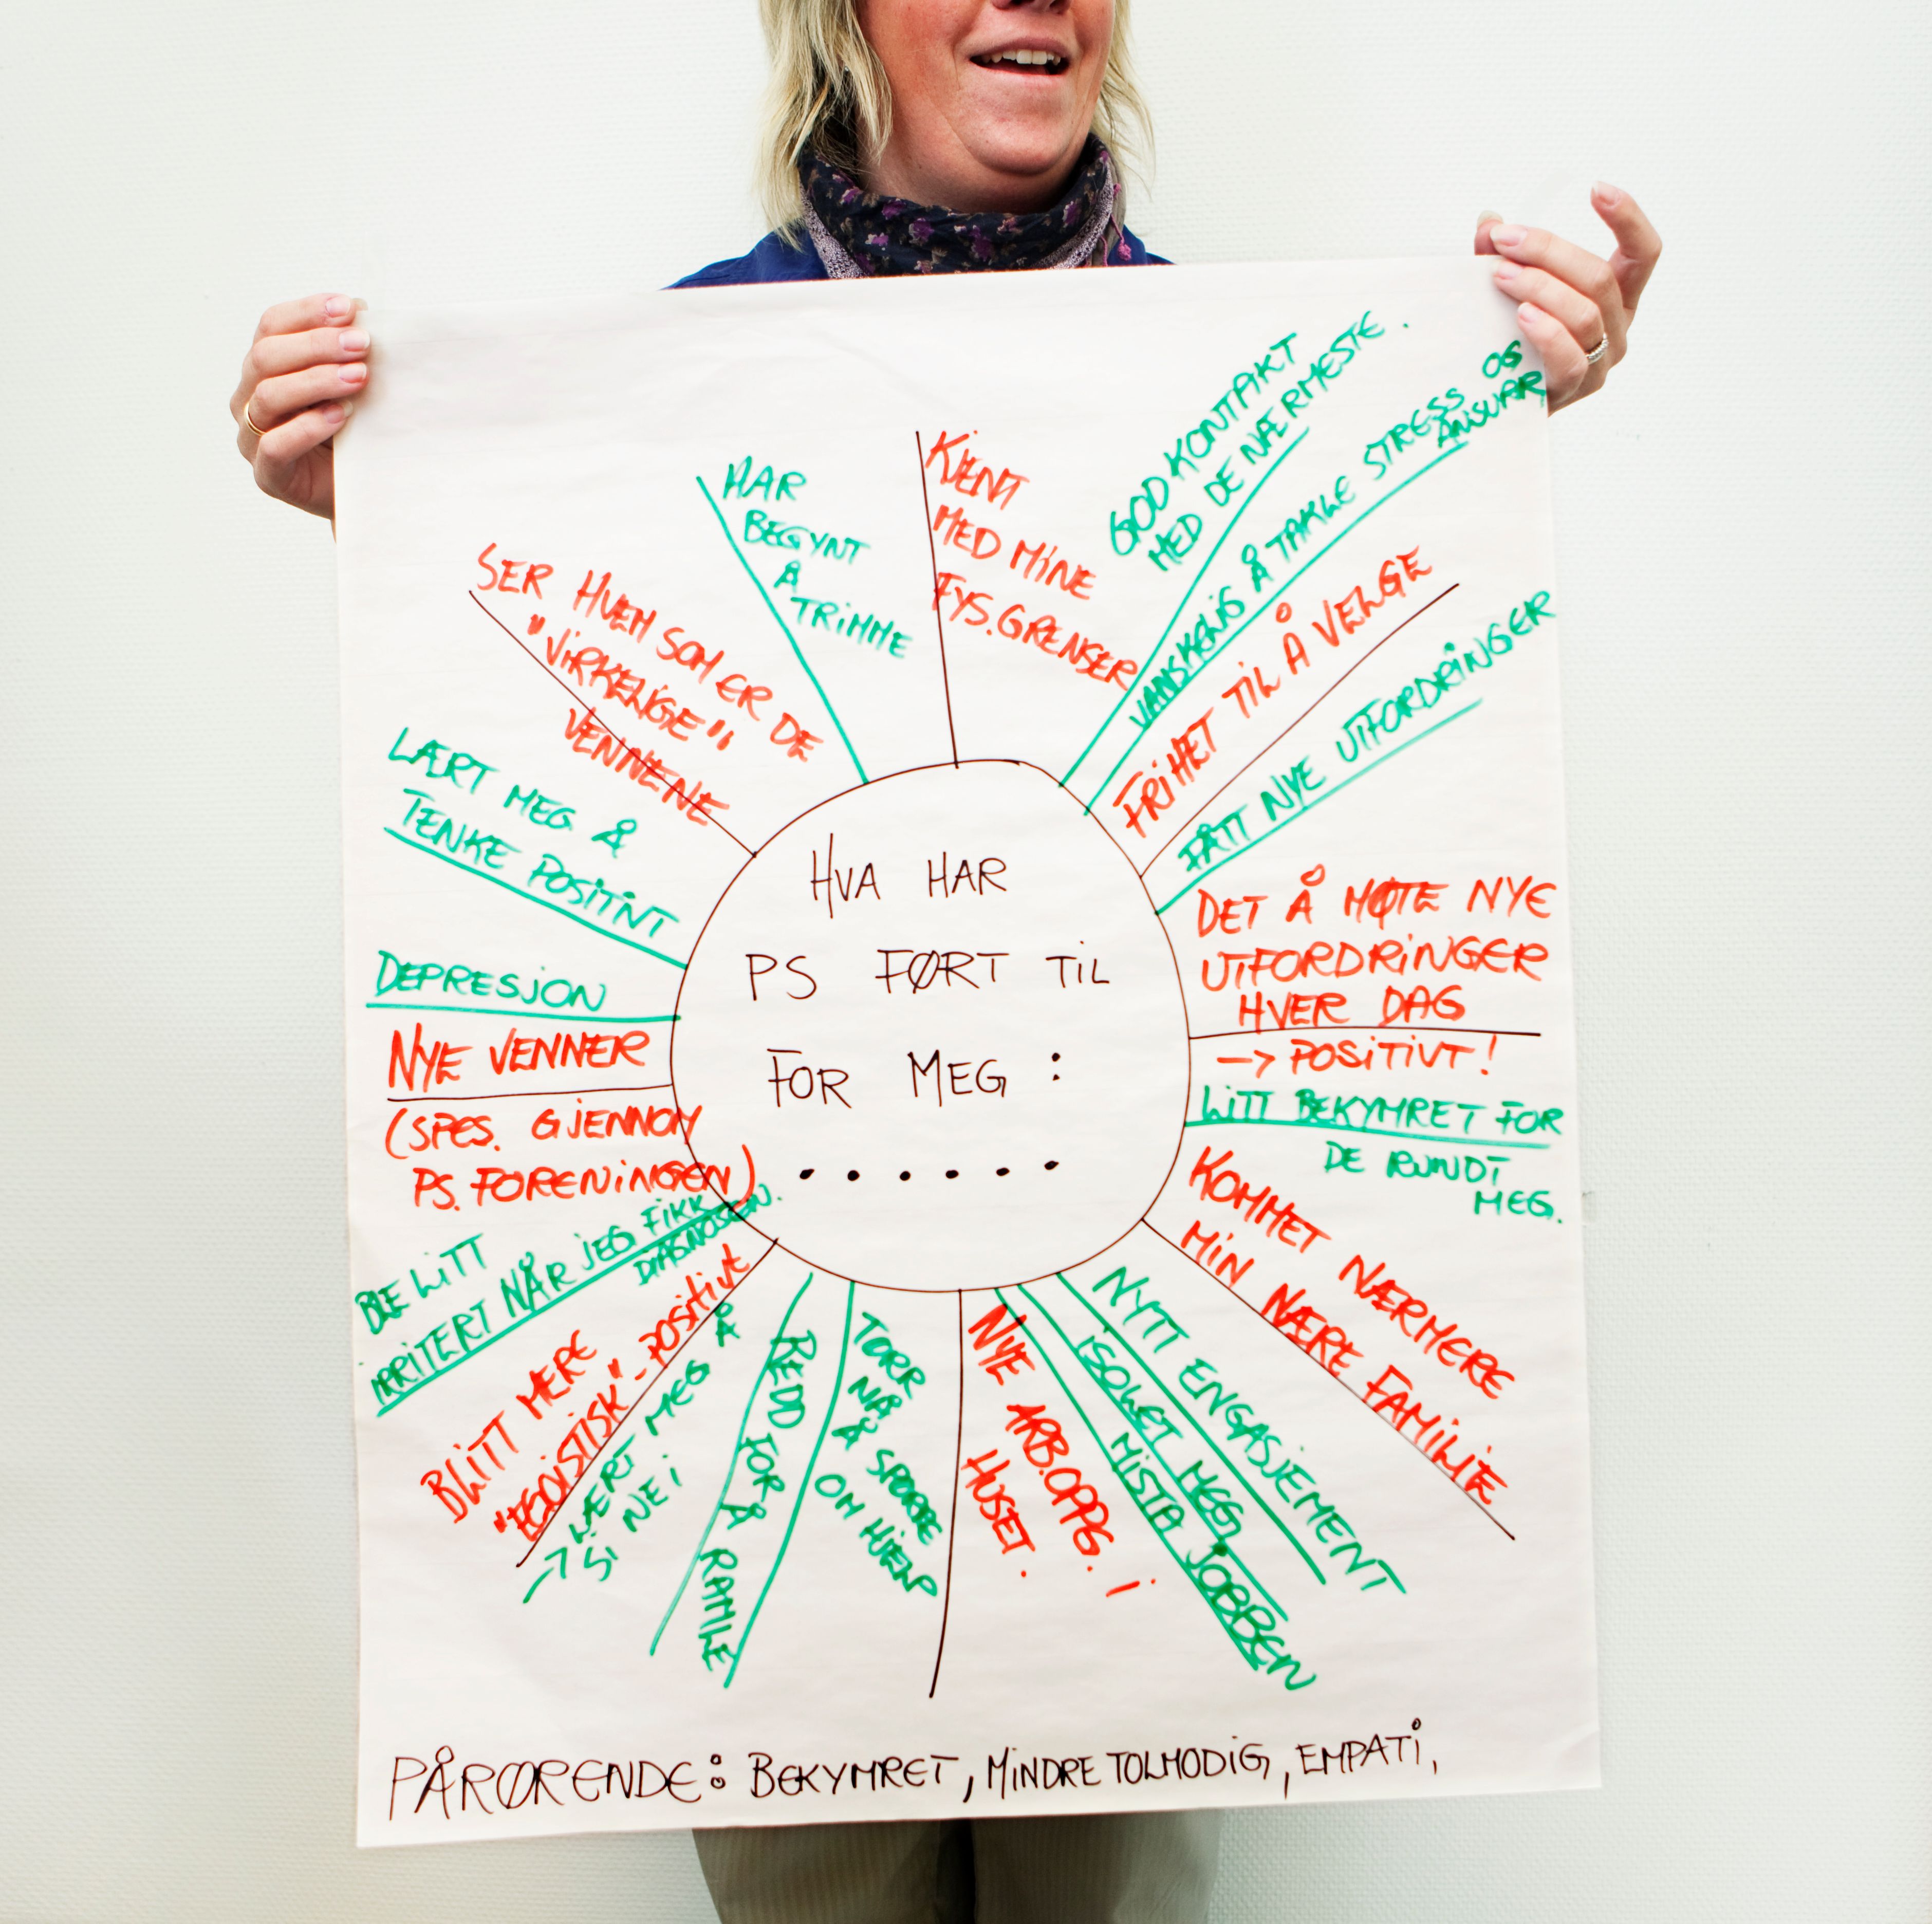 HVA HAR
PS FØRT TIL
FOR MEG :
. . . . . .
KJENT
MED MINE
FYS. GRENSER
GOD KONTAKT
MED DE NÆRMESTE.
VANSKELIG Å TAKLE STRESS OG
ANSVAR
FRIHET TIL Å VELGE
FÅTT NYE UTFORDRINGER
DET Å MØTE NYE
UTFORDRINGER
HVER DAG
-> POSITIVT!
LITT BEKYMRET FOR
DE RUNDT
MEG.
KOMMET NÆRMERE
MIN NÆRE FAMILIE
NYTT ENGASJEMENT
ISOLERT MEG
MISTA JOBBEN
NYE ARB.OPPG. i
HUSET.
TORR
NÅ
Å SPØRRE
OM HJELP
REDD FOR Å RAMLE
BLITT MERE
"EGOISTISK" - POSITIVT
-> LÆRT MEG Å
Si NEi
BLE LITT
IRRITERT NÅR JEG FIKK
DIAGNOSEN.
NYE VENNER
(SPES. GJENNOM
PS. FORENINGEN)
DEPRESJON
LÆRT MEG Å
TENKE POSITIVT
SER HVEM SOM ER DE
"VIRKELIGE"
VENNENE
HAR
BEGYNT
Å
TRIMME
PÅRØRENDE: BEKYMRET, MINDRE TOLMODIG, EMPATI,